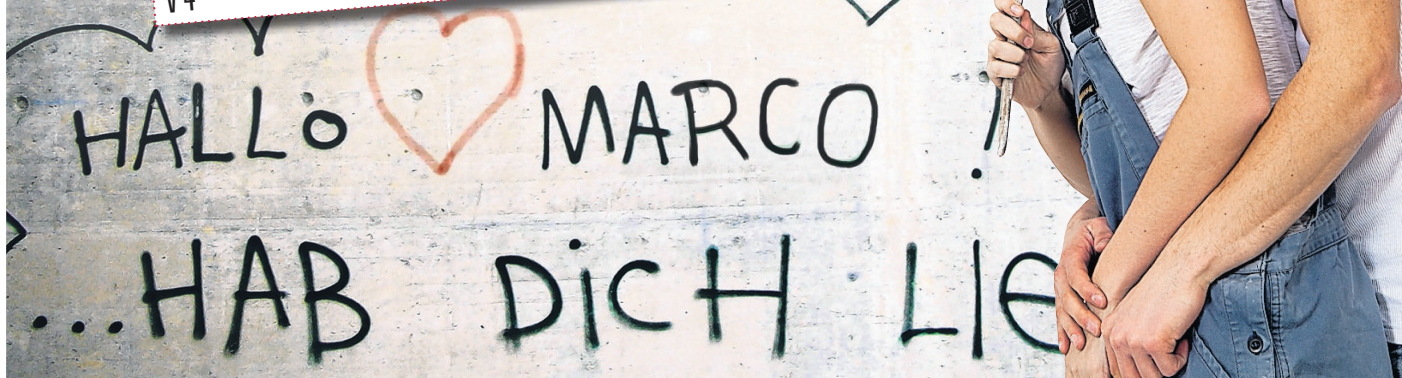 HALLO MARCO !
...HAB DiCH LIE